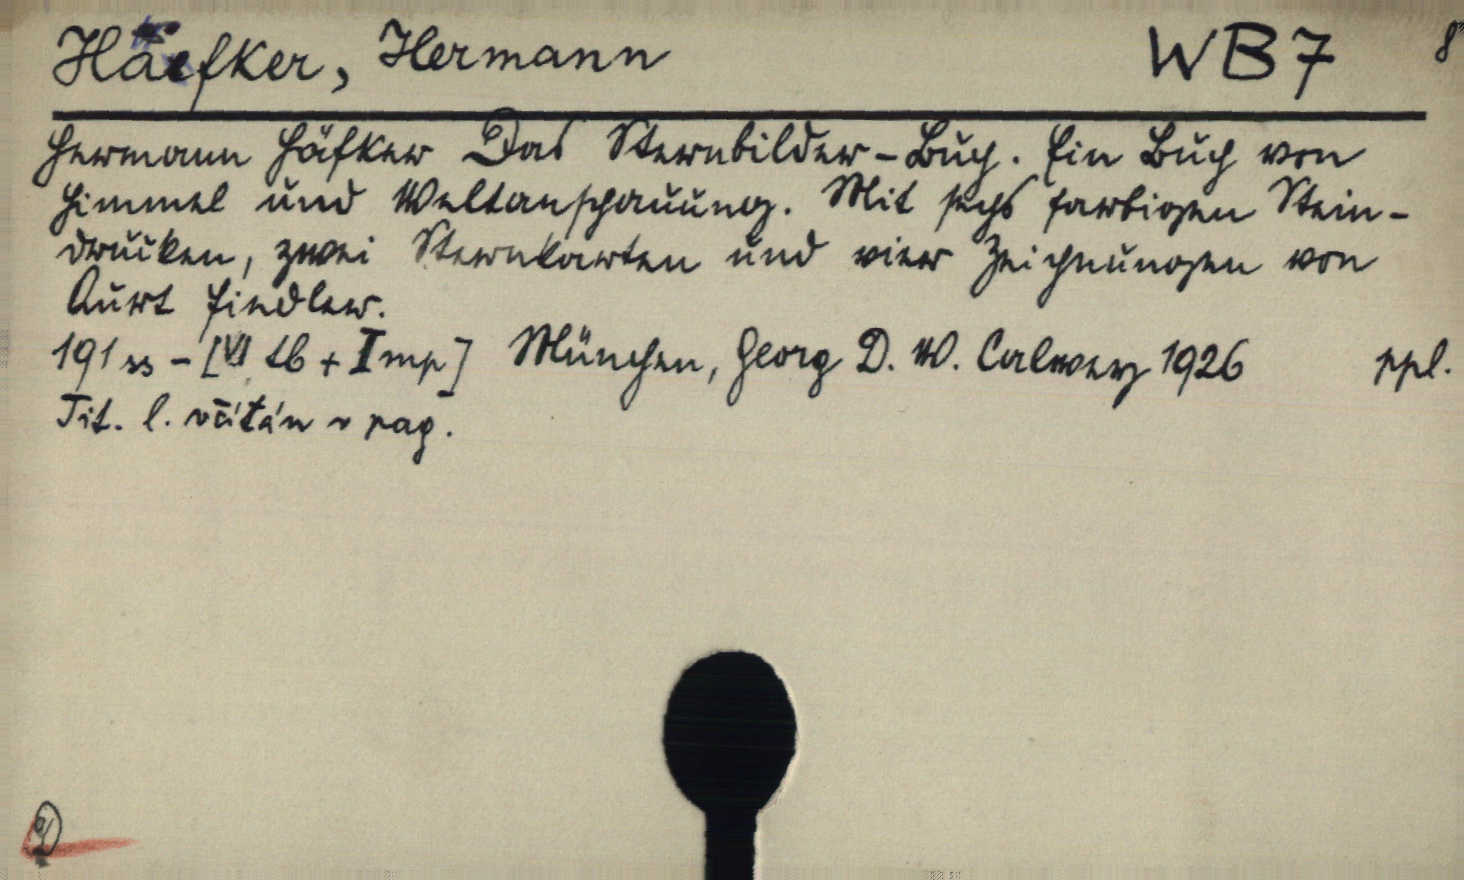 Haefker, Hermann WB7 8°
Hermann Häfker Das Sternbilder-Buch. Ein Buch von
Himmel und Weltanschauung. Mit sechs farbigen Stein-
drucken, zwei Sternkarten und vier Zeichnungen von
Kurt Fiedler.
191 ss - [VI tb + I mp] München, Georg D. W. Callwey 1926 ppl.
Tit. l. včítán v pag.